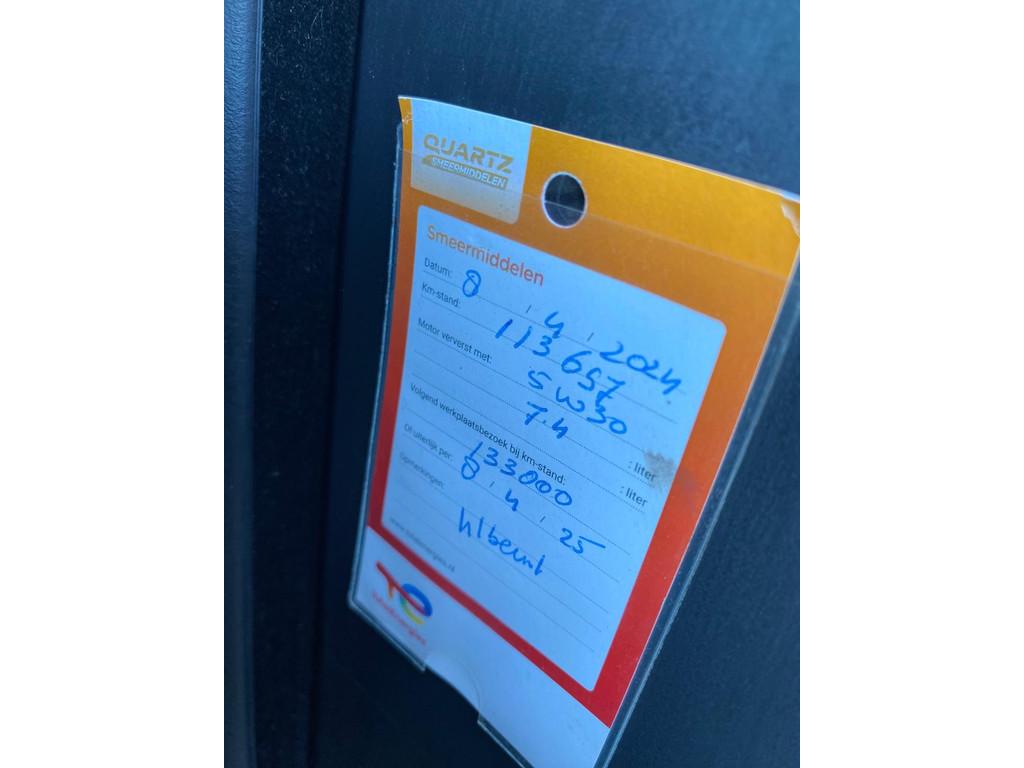 QUARTZ
SMEERMIDDELEN
Smeermiddelen
Datum: 8 , 4 , 2024
Km-stand: 113657
Motor ververst met: 5W30 : liter
7.4 : liter
Volgend werkplaatsbezoek bij km-stand:
133000
Of uiterlijk per: 8 , 4 , 25
Opmerkingen:
www.totalenergies.nl
TotalEnergies